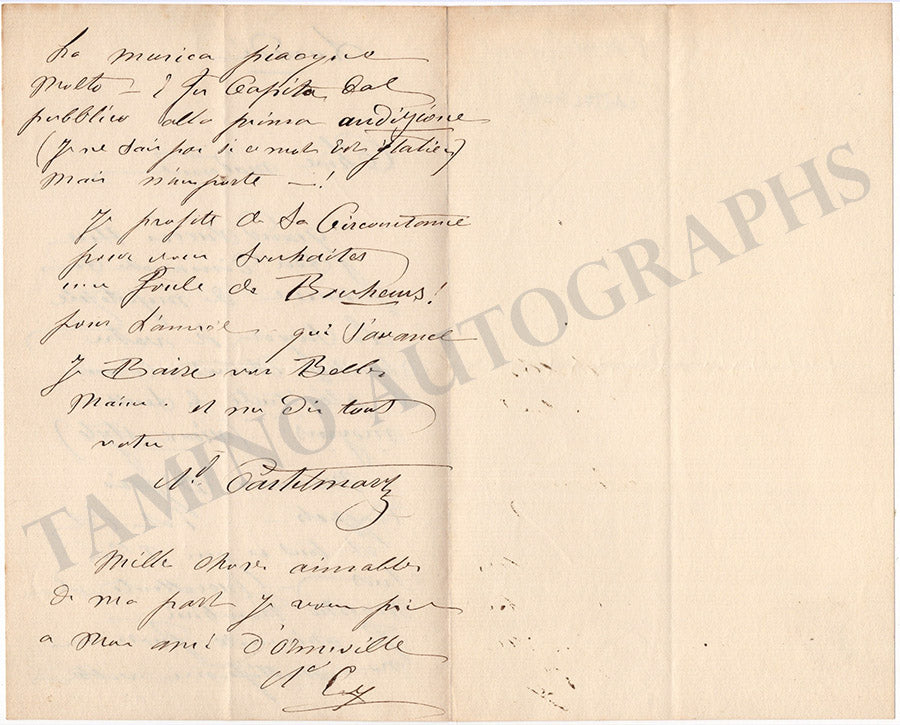 La musica piacque
molto – E fu Capita dal
pubblico alla prima audizione
(Je ne sais pas si ce mot est italien)
mais n'importe – !
Je profite de la Circonstance
pour vous souhaiter
une foule de Bonheurs!
pour l'année qui s'avance
Je Baise vos Belles
mains. et me dis tout
votre
Ad. Castelmary
Mille choses aimables
de ma part je vous prie
a mon ami d'Ormeville
Ad Cy
TAMINO AUTOGRAPHS